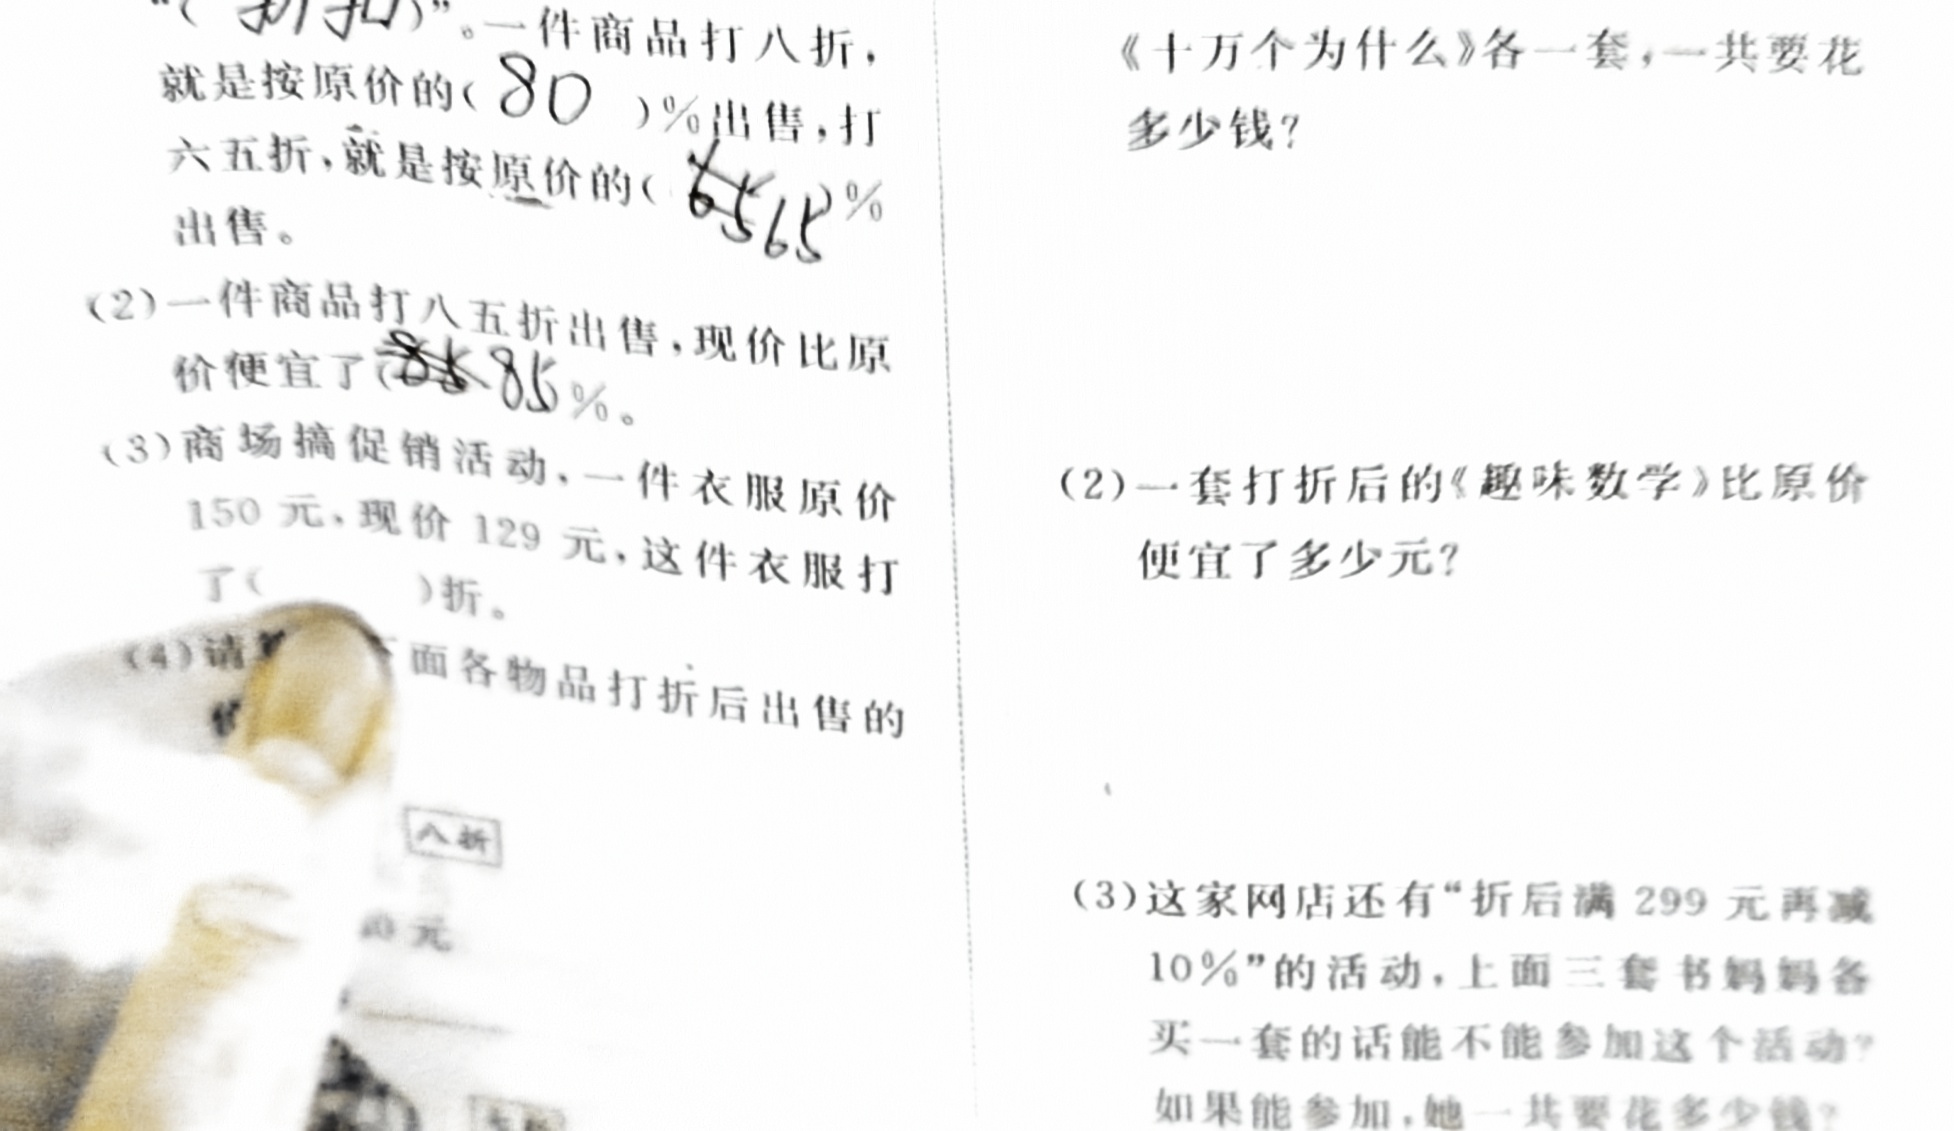 “(折扣)”。一件商品打八折，
就是按原价的(80)%出售，打
六五折，就是按原价的(65 65)%
出售。
(2)一件商品打八五折出售，现价比原
价便宜了(85 85)%。
(3)商场搞促销活动，一件衣服原价
150元，现价129元，这件衣服打
了( )折。
(4)请 面各物品打折后出售的
八折
元
《十万个为什么》各一套，一共要花
多少钱？
(2)一套打折后的《趣味数学》比原价
便宜了多少元？
(3)这家网店还有“折后满299元再减
10%”的活动，上面三套书妈妈各
买一套的话能不能参加这个活动？
如果能参加，她一共要花多少钱？